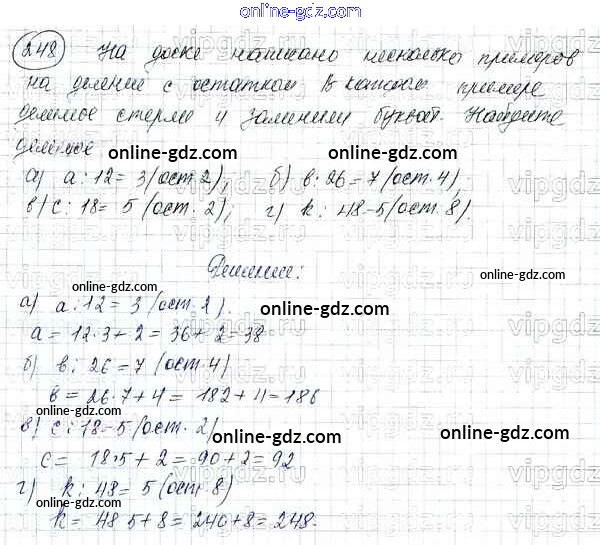 online-gdz.com
248 На доске написано несколько примеров
на деление с остатком В каждом примере
делимое стерли и заменили буквой. Найдите
делимое
online-gdz.com online-gdz.com
а) a : 12 = 3 (ост. 2); б) в : 26 = 7 (ост. 4)
в) с : 18 = 5 (ост. 2); г) k : 48 - 5 (ост. 8)
Решение:
online-gdz.com
а) a : 12 = 3 (ост. 2).
online-gdz.com
a = 12·3 + 2 = 36 + 2 = 38
б) в : 26 = 7 (ост. 4)
online-gdz.com online-gdz.com
в = 26·7 + 4 = 182 + 4 = 186
online-gdz.com
в) с : 18 - 5 (ост. 2)
online-gdz.com online-gdz.com
с = 18·5 + 2 = 90 + 2 = 92
г) k : 48 = 5 (ост. 8)
online-gdz.com
k = 48 5 + 8 = 240 + 8 = 248.
online-gdz.com